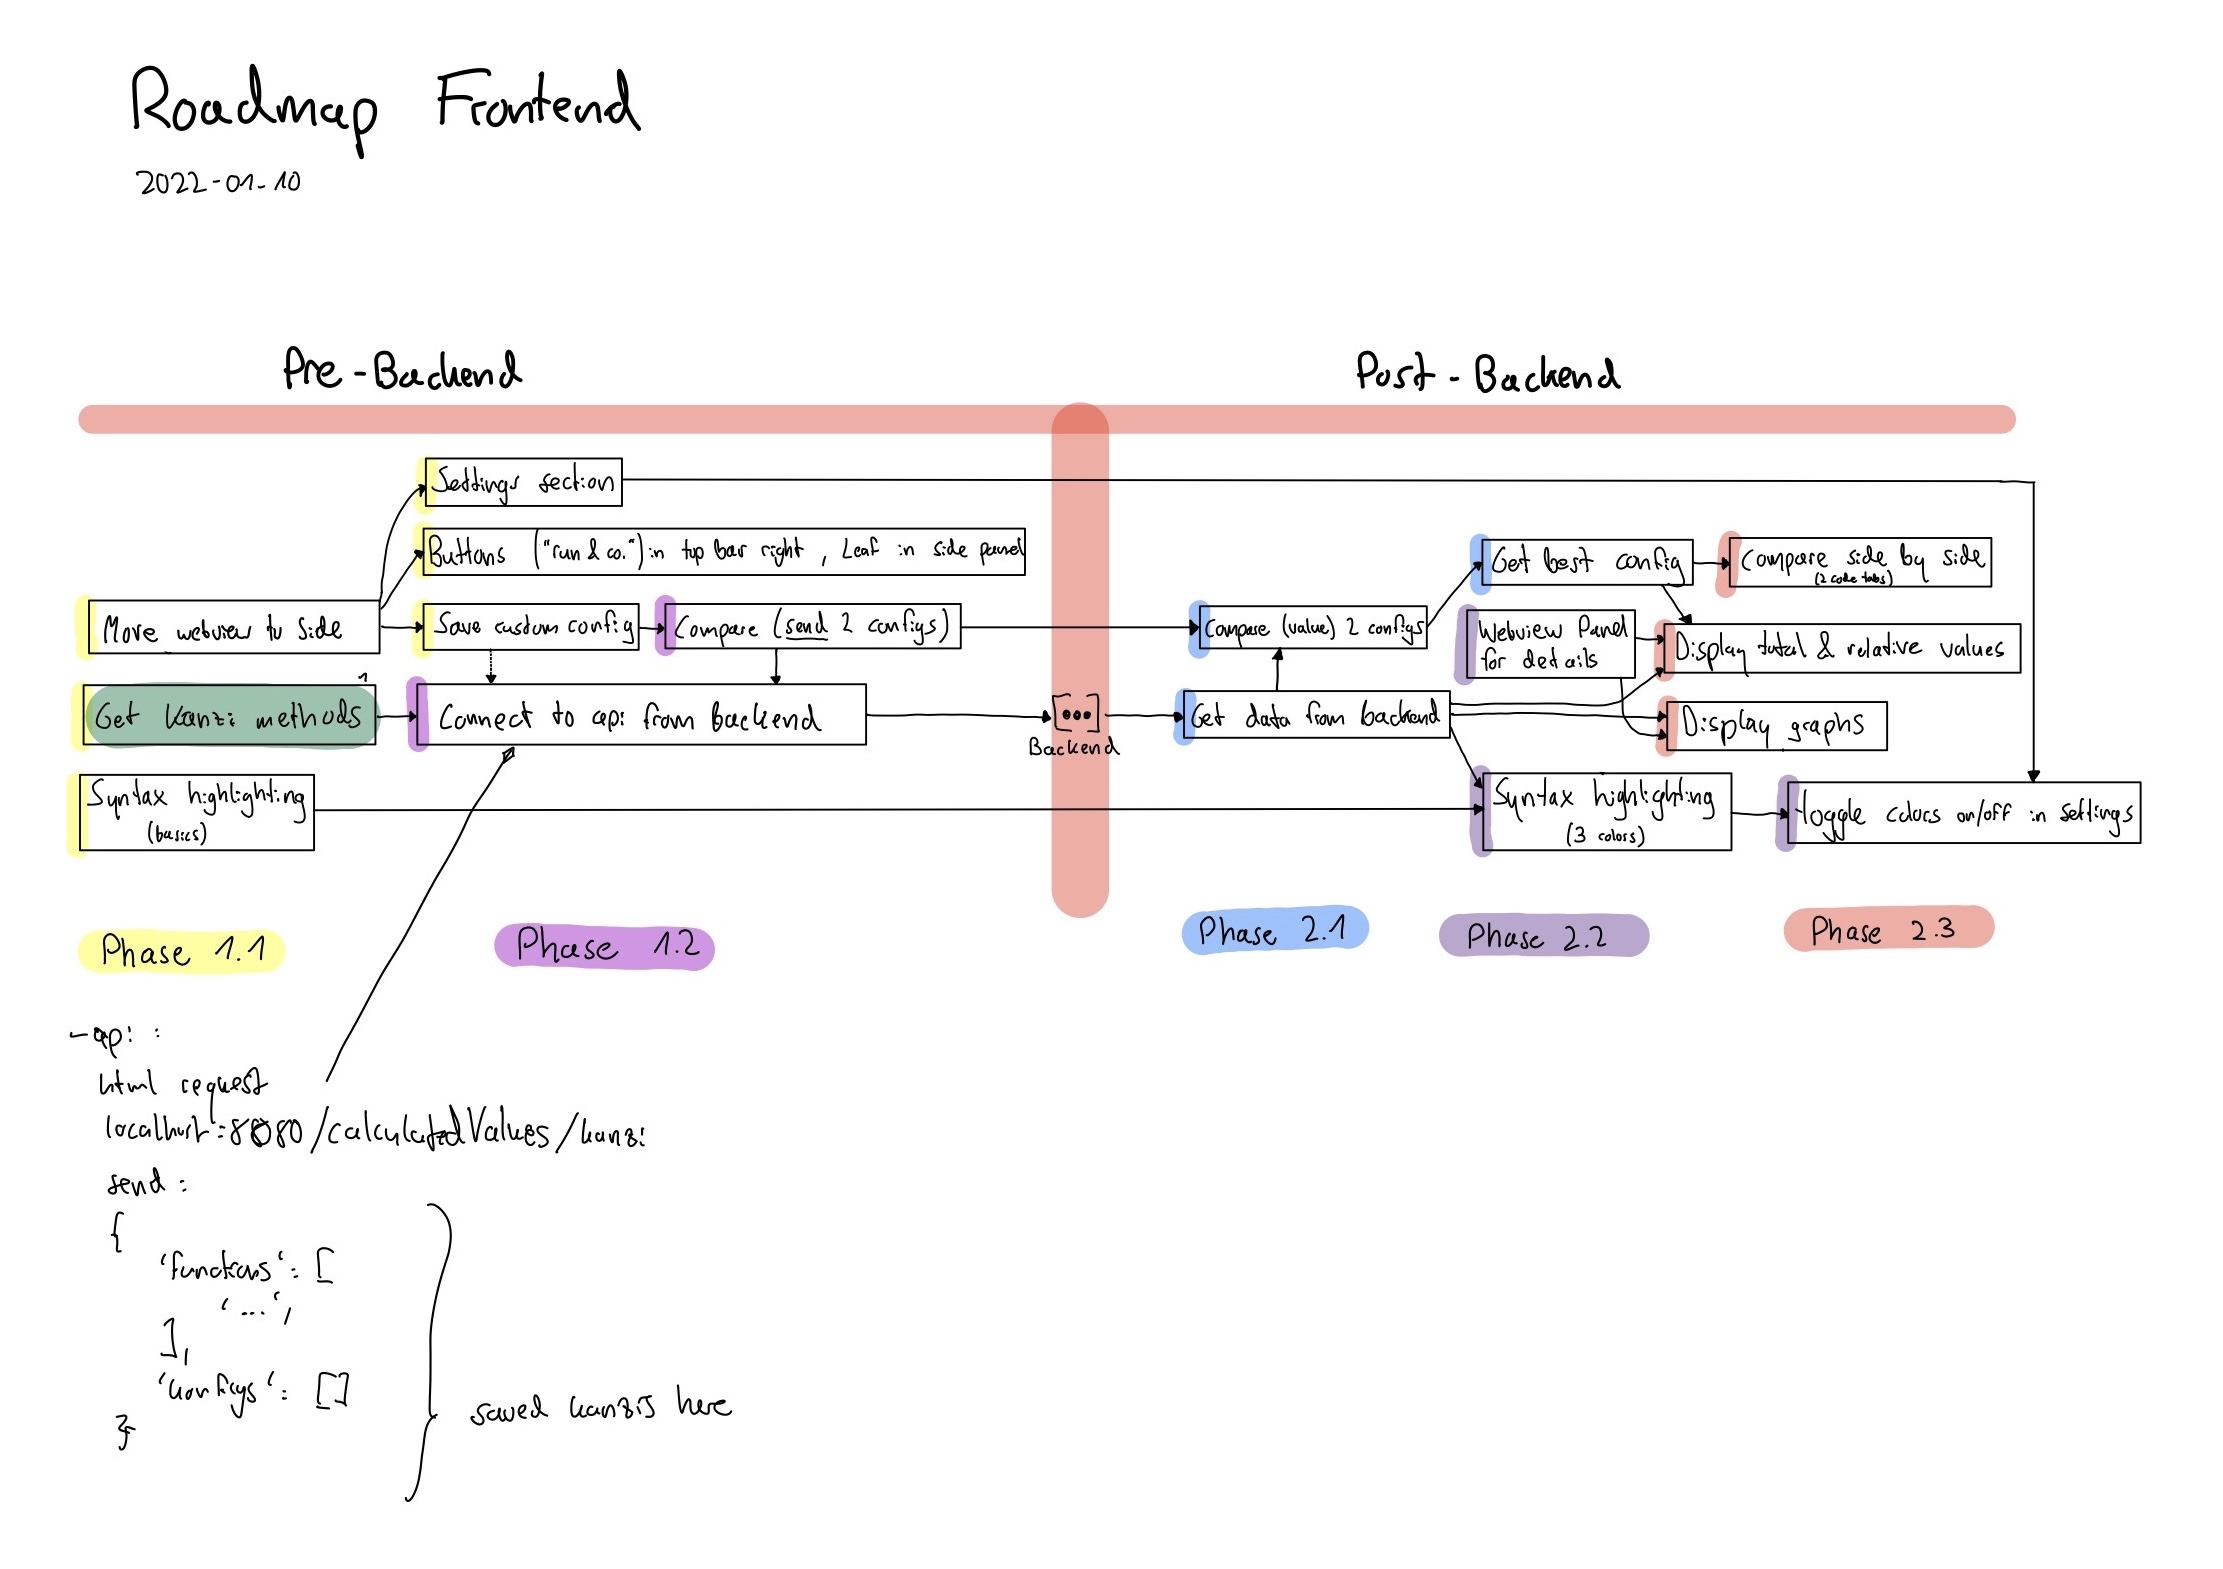 Roadmap Frontend
2022-01-10
Pre-Backend
Post-Backend
Settings section
Buttons ("run & co.") in top bar right, Leaf in side panel
Move webview to side
Save custom config
Compare (send 2 configs)
Get Kanzi methods
1
Connect to api from backend
Syntax highlighting
(basics)
...
Backend
Compare (value) 2 configs
Get data from backend
Get best config
Compare side by side
(2 code tabs)
Webview Panel
for details
Display total & relative values
Display graphs
Syntax highlighting
(3 colors)
toggle colors on/off in settings
Phase 1.1
Phase 1.2
Phase 2.1
Phase 2.2
Phase 2.3
- api:
html request
localhost:8080/calculatedValues/kanzi
send:
{
'functions': [
'...',
],
'configs': []
}
saved kanzis here